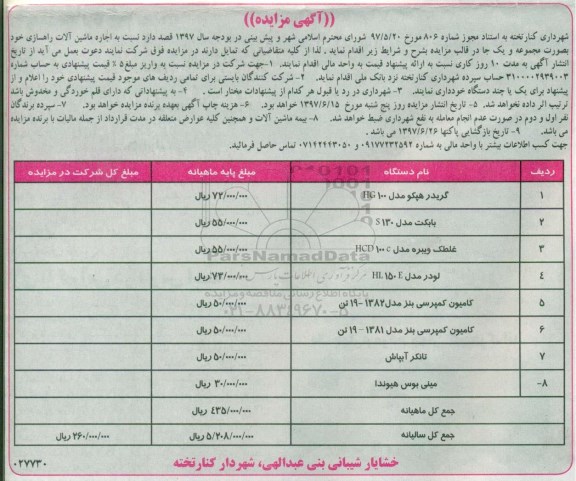 ((آگهی مزایده))
شهرداری کنارتخته به استناد مجوز شماره ۸۰۶ مورخ ۹۷/۵/۲۰ شورای محترم اسلامی شهر و پیش بینی در بودجه سال ۱۳۹۷ قصد دارد نسبت به اجاره ماشین آلات راهسازی خود
بصورت مجموعه و یک جا در قالب مزایده بشرح و شرایط زیر اقدام نماید . لذا از کلیه متقاضیانی که تمایل دارند در مزایده فوق شرکت نمایند دعوت بعمل می آید از تاریخ
انتشار آگهی به مدت ۱۰ روز کاری نسبت به ارائه پیشنهاد قیمت به واحد مالی اقدام نمایند. ۱-جهت شرکت در مزایده نسبت به واریز مبلغ ۵٪ قیمت پیشنهادی به حساب شماره
۳۱۰۰۰۰۲۹۳۹۰۰۳ حساب سپرده شهرداری کنارتخته نزد بانک ملی اقدام نماید. ۲- شرکت کنندگان بایستی برای تمامی ردیف های موجود قیمت پیشنهادی خود را اعلام و از
پیشنهاد برای یک یا چند دستگاه خودداری نمایند. ۳- شهرداری در رد یا قبول هر کدام از پیشنهادات مختار است . ۴- به پیشنهاداتی که دارای قلم خوردگی و مخدوش باشد
ترتیب اثر داده نخواهد شد. ۵- تاریخ انتشار مزایده روز پنج شنبه مورخ ۱۳۹۷/۶/۱۵ خواهد بود. ۶- هزینه چاپ آگهی بعهده برنده مزایده خواهد بود. ۷- سپرده برندگان
نفر اول و دوم در صورت عدم انجام معامله به نفع شهرداری ضبط خواهد شد. ۸- بیمه ماشین آلات و همچنین کلیه عوارض متعلقه در مدت قرارداد از جمله مالیات با برنده مزایده
می باشد. ۹- تاریخ بازگشایی پاکتها ۱۳۹۷/۶/۲۶ می باشد .
جهت کسب اطلاعات بیشتر با واحد مالی به شماره ۰۹۱۷۷۲۳۲۵۹۲ و ۰۷۱۴۲۴۴۳۰۵۰ تماس حاصل فرمائید.
ردیف نام دستگاه مبلغ پایه ماهیانه مبلغ کل شرکت در مزایده
۱ گریدر هپکو مدل HG ۱۰۰ ۷۲/۰۰۰/۰۰۰ ریال
۲ بابکت مدل S ۱۳۰ ۵۵/۰۰۰/۰۰۰ ریال
۳ غلطک ویبره مدل HCD ۱۰۰ c ۵۵/۰۰۰/۰۰۰ ریال
۴ لودر مدل HL ۱۵۰ E ۷۳/۰۰۰/۰۰۰ ریال
۵ کامیون کمپرسی بنز مدل ۱۳۸۲-۱۹ تن ۵۰/۰۰۰/۰۰۰ ریال
۶ کامیون کمپرسی بنز مدل ۱۳۸۱-۱۹ تن ۵۰/۰۰۰/۰۰۰ ریال
۷ تانکر آبپاش ۵۰/۰۰۰/۰۰۰ ریال
۸- مینی بوس هیوندا ۳۰/۰۰۰/۰۰۰ ریال
جمع کل ماهیانه ۴۳۵/۰۰۰/۰۰۰ ریال
جمع کل سالیانه ۵/۲۰۸/۰۰۰/۰۰۰ ریال ۲۶۰/۰۰۰/۰۰۰ ریال
ParsNamadData
پایگاه اطلاع رسانی مناقصه و مزایده
۰۲۱-۸۸۳۴۹۶۷۰-۵
خشایار شیبانی بنی عبدالهی، شهردار کنارتخته
۰۲۷۷۳۰